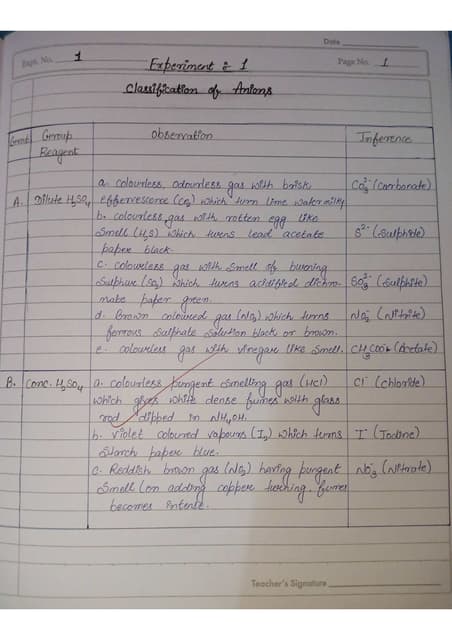 Date
Expt. No. 1
Experiment : 1
Page No. 1
Classification of Anions
Group
Group Reagent
Observation
Inference
A.
Dilute H₂SO₄
a. colourless, odourless gas with brisk
effervescence (CO₂) which turn lime water milky
CO₃²⁻ (Carbonate)
b. colourless gas with rotten egg like
smell (H₂S) which turns lead acetate
paper black.
S²⁻ (Sulphide)
c. colourless gas with smell of burning
sulphur (SO₂) which turns acidified dichro-
mate paper green.
SO₃²⁻ (Sulphite)
d. Brown coloured gas (NO₂) which turns
ferrous sulphate solution black or brown.
NO₂⁻ (Nitrite)
e. colourless gas with vinegar like smell.
CH₃COO⁻ (Acetate)
B.
Conc. H₂SO₄
a. colourless pungent smelling gas (HCl)
which gives white dense fumes with glass
rod dipped in NH₄OH.
Cl⁻ (chloride)
b. violet coloured vapours (I₂) which turns
starch paper blue.
I⁻ (Iodine)
c. Reddish brown gas (NO₂) having pungent
smell (on adding copper turning, fumes
becomes intense.
NO₃⁻ (Nitrate)
Teacher's Signature